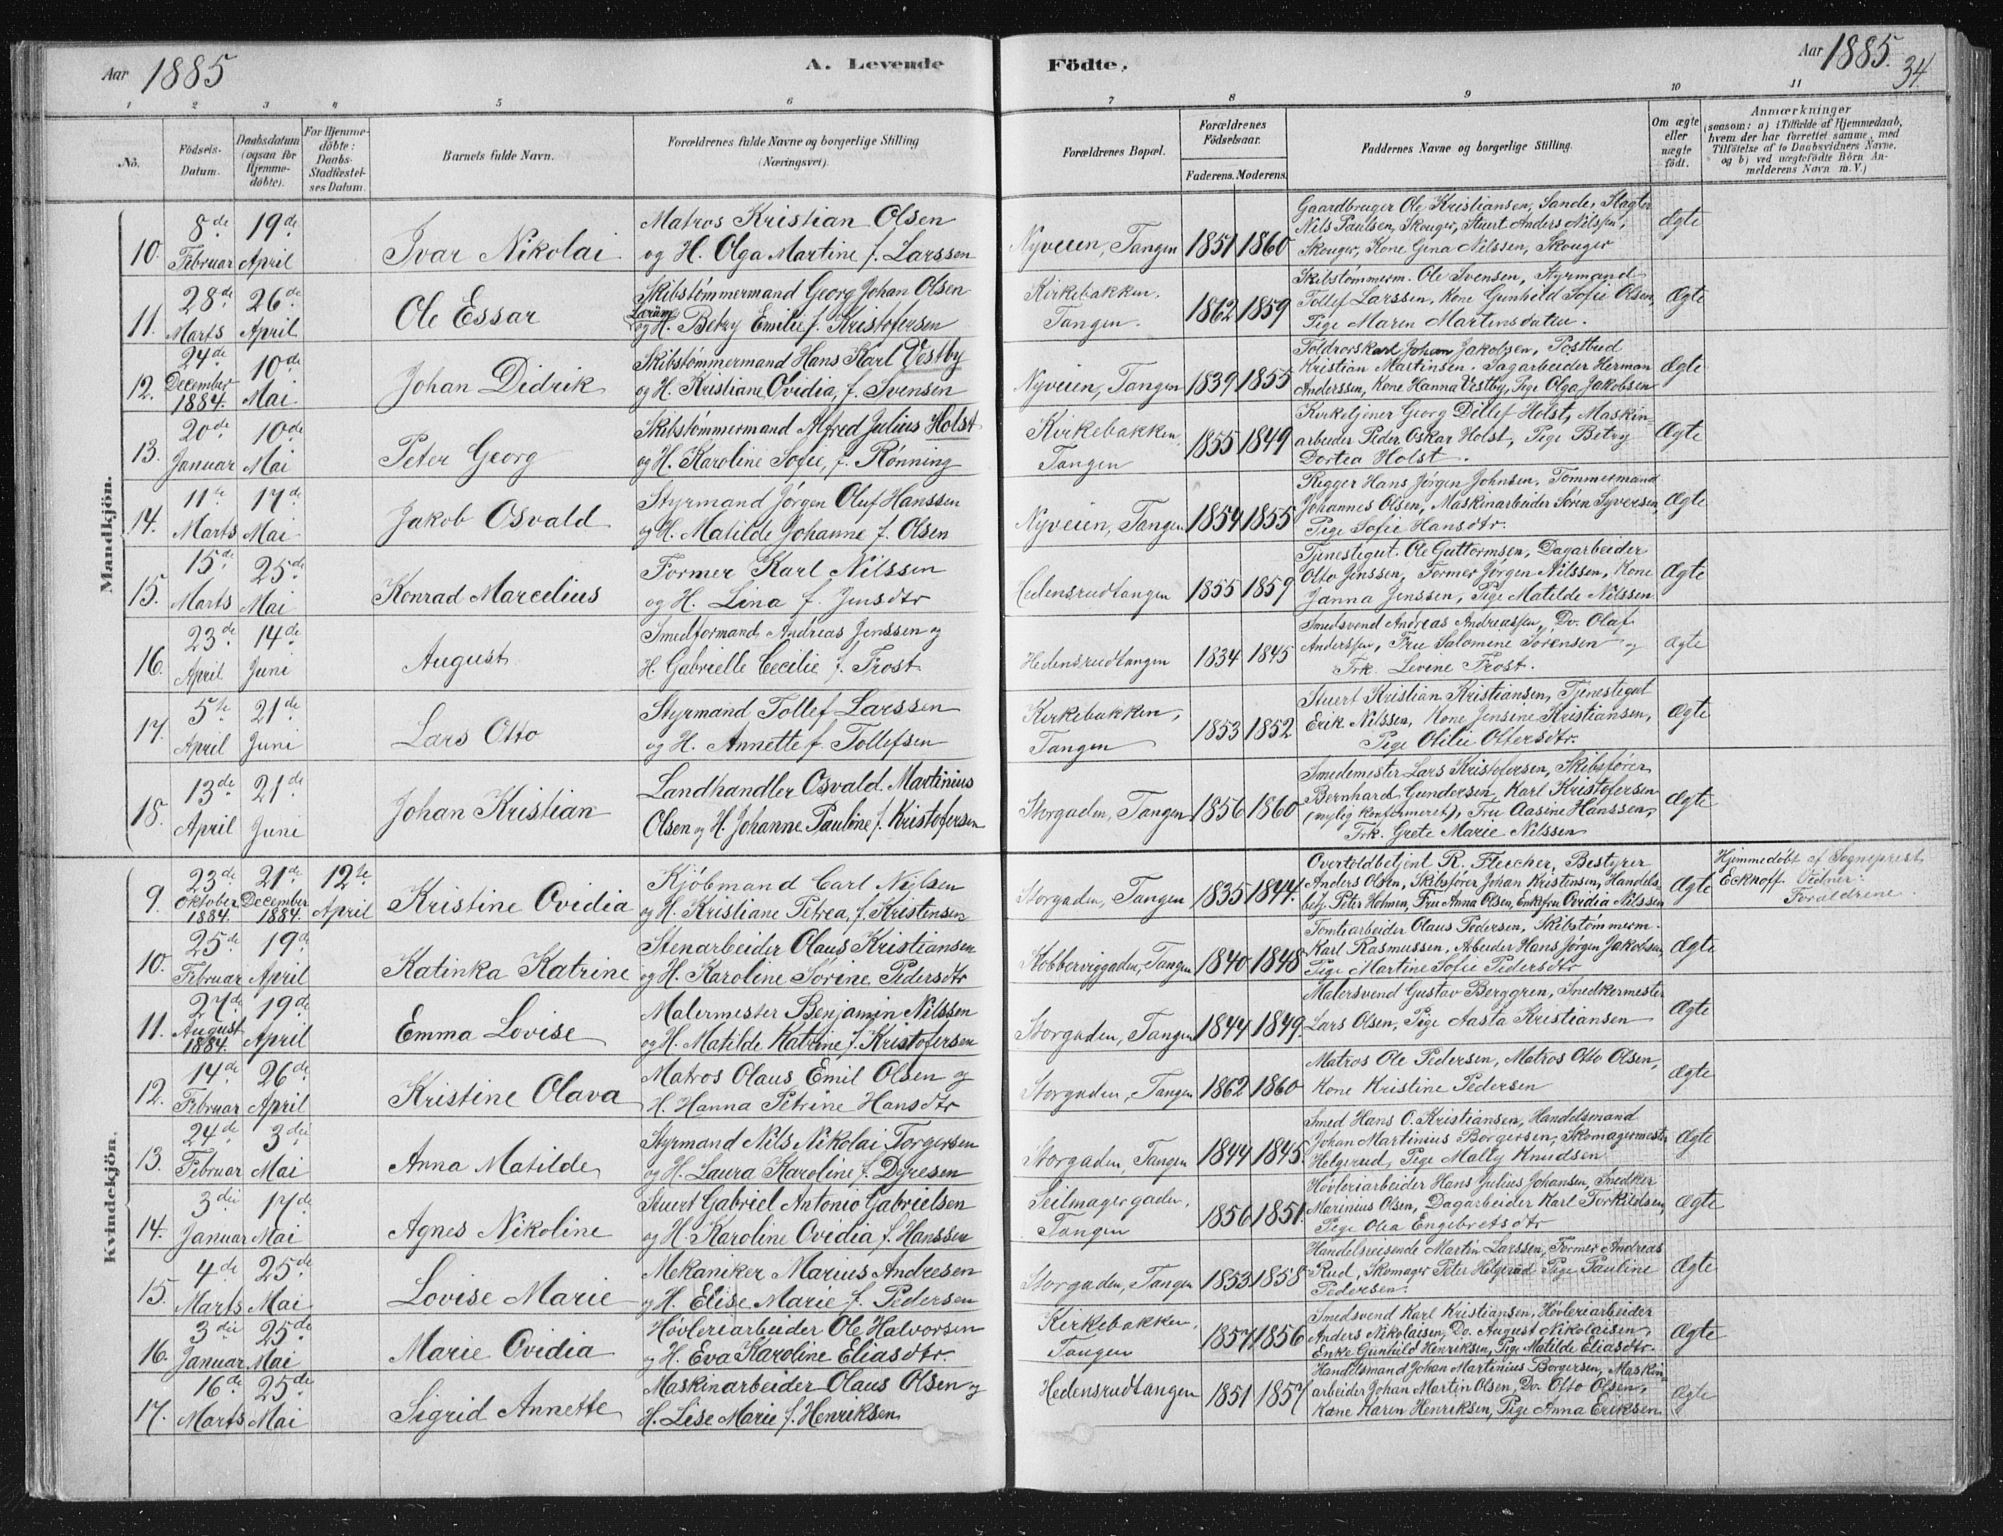 Aar 1885
A. Levende Födte.
Aar 1885.
34.
1 2 3 4 5 6 7 8 9 10 11
No.
Födsels-Datum.
Daabsdatum (ogsaa for Hjemmedöbte).
For Hjemmedöbte: Daabs-Stadfæstelses Datum.
Barnets fulde Navn.
Forældrenes fulde Navne og borgerlige Stilling (Næringsvei).
Forældrenes Bopæl.
Forældrenes Födselsaar.
Faderens. Moderens.
Faddernes Navne og borgerlige Stilling.
Om ægte eller uægte födt.
Anmærkninger
(saasom: a) i Tilfælde af Hjemmedaab,
hvem der har forrettet samme, med
Tilföielse af to Daabsvidners Navne,
og b) ved uægtefödte Börn An-
melderens Navn m. V.)
Mandkjön.
10. 8de Februar 19de April Ivar Nikolai
Matros Kristian Olsen
og H. Olga Martine f. Larssen
Nyveien, Tangen 1851 1860
Gaardbruger Ole Kristiansen, Sande, Slagter
Nils Paulsen, Skouger, Stuert Anders Nilssen,
Skouger, Kone Gina Nilssen, Skouger
Ægte
11. 28de Marts 26de April Ole Essar
Skibstømmermand Georg Johan Olsen
og H. Betzy Emilie f. Kristofersen
Kirkebakken, Tangen. 1862 1859
Skibstømmerm. Ole Svensen, Styrmand
Tollef Larssen, Kone Gunhild Sofie Olsen,
Pige Maren Martinsdatter.
Ægte
12. 24de December 1884. 10de Mai Johan Didrik
Skibstømmermand Hans Karl Vestby
og H. Kristiane Ovidia, f. Svensen
Nyveien, Tangen 1839 1855
Toldrorskarl Johan Jakobsen, Postbud
Kristian Martinsen, Sagarbeider Herman
Anderssen, Kone Hanna Vestby, Pige Olga Jakobsen
Ægte
13. 20de Januar 10de Mai Peter Georg
Skibstømmermand Alfred Julius Holst
og H. Karoline Sofie, f. Rønning
Kirkebakken, Tangen 1855 1849
Kirketjener Georg Ditlef Holst, Maskin-
arbeider Peder Oskar Holst, Pige Betzy
Dortea Holst.
Ægte
14. 11te Marts 17de Mai Jakob Osvald
Styrmand Jørgen Oluf Hanssen
og H. Matilde Johanne f. Olsen
Nyveien, Tangen 1854 1855
Rigger Hans Jørgen Johnsen, Tømmermand
Johannes Olsen, Maskinarbeider Søren Syversen,
Pige Sofie Hansdtr.
Ægte
15. 15de Marts 25de Mai Konrad Marcelius
Former Karl Nilssen
og H. Lina f. Jensdtr
Hedensrudtangen 1855 1859
Tjenestegut Ole Guttormsen, Dagarbeider
Otto Jenssen, Former Jørgen Nilssen, Kone
Janna Jenssen, Pige Matilde Nilssen
Ægte
16. 23de April 14de Juni August
Smedformand Andreas Jenssen og
H. Gabrielle Cecilie f. Frost
Hedensrudtangen 1834 1845
Smedsvend Andreas Andreassen, Do. Olaf
Anderssen, Fru Salomine Sørensen og
Frk. Levine Frost.
Ægte
17. 5te April 21de Juni Lars Otto
Styrmand Tollef Larssen
og H. Annette f. Tollefsen
Kirkebakken, Tangen 1853 1852
Stuert Kristian Kristiansen, Tjenestegut
Erik Nilssen, Kone Jensine Kristiansen,
Pige Otilie Ottersdtr.
Ægte
18. 13de April 21de Juni Johan Kristian
Landhandler Osvald Martinius
Olsen og H. Johanne Pauline f. Kristofersen
Storgaden, Tangen 1856 1860
Smedemester Lars Kristofersen, Skibsfører
Bernhard Gundersen, Karl Kristofersen
(nylig konfirmeret), Fru Aasine Hanssen,
Frk. Grete Marie Nilssen
Ægte
Kvindekjön.
9. 23de Oktober 1884. 21de December 1884. 12te April Kristine Ovidia
Kjøbmand Carl Nilsen
og H. Kristiane Petrea, f. Kristensen
Storgaden, Tangen 1835 1844.
Overtoldbetjent R. Fleischer, Bestyrer
Anders Olsen, Skibsfører Johan Kristensen, Handels-
betj. Peter Holmen, Fru Anna Olsen, Enkefru Ovidia Nilssen
Ægte
Hjemmedøbt af Sogneprest
Eckhoff. Vidner:
Forældrene
10. 25de Februar 19de April Katinka Katrine
Stenarbeider Olaus Kristiansen
og H. Karoline Sørine, Pedersdtr
Kobberviggaden, Tangen 1840 1848
Tomtearbeider Olaus Pedersen, Skibstømmerm.
Karl Rasmussen, Arbeider Hans Jørgen Jakobsen,
Pige Martine Sofie Pedersdtr
Ægte
11. 27de August 1884. 19de April Emma Lovise
Malermester Benjamin Nilssen
og H. Matilde Katrine f. Kristofersen
Storgaden, Tangen 1844 1849.
Malersvend Gustav Berggren, Snedkermester
Lars Olsen, Pige Aasta Kristiansen
Ægte
12. 14de Februar 26de April Kristine Olava
Matros Olaus Emil Olsen og
H. Hanna Petrine Hansdtr
Storgaden, Tangen 1862 1860
Matros Ole Pedersen, Matros Otto Olsen,
Kone Kristine Pedersen
Ægte
13. 24de Februar 3die Mai Anna Matilde
Styrmand Nils Nikolai Torgersen
og H. Laura Karoline f. Dyresen
Storgaden, Tangen 1844 1845.
Smed Hans O. Kristiansen, Handelsmand
Johan Martinius Borgersen, Skomagermester
Helgerud, Pige Mally Knudsen
Ægte
14. 3die Januar 17de Mai Agnes Nikoline
Stuert Gabriel Antonio Gabrielsen
og H. Karoline Ovidia f. Hanssen
Seilmagergaden, Tangen 1856 1851.
Høvleriarbeider Hans Julius Johansen, Snedker
Marinius Olsen, Dagarbeider Karl Torkildsen,
Pige Olea Engebretsdtr
Ægte
15. 4de Marts 25de Mai Lovise Marie
Mekaniker Marius Andresen
og H. Elise Marie f. Pedersen
Storgaden, Tangen 1853 1858
Handelsreisende Martin Larssen, Former Andreas
Rud, Skomager Peter Helgerud Pige Pauline
Pedersen.
Ægte
16. 3die Januar 25de Mai Marie Ovidia
Høvleriarbeider Ole Halvorsen
og H. Eva Karoline Eliasdtr.
Kirkebakken, Tangen 1857 1856
Smedsvend Karl Kristiansen, Høvleriarbeider
Anders Nikolaisen, Do. August Nikolaisen,
Enke Gunhild Henriksen, Pige Matilde Eliasdtr.
Ægte
17. 16de Marts 25de Mai Sigrid Annette
Maskinarbeider Olaus Olsen og
H. Lise Marie f. Henriksen
Hedensrudtangen 1851 1857
Handelsmand Johan Martinius Borgersen, Maskin-
arbeider Johan Martin Olsen, Do. Otto Olsen,
Kone Karen Henriksen, Pige Anna Eriksen
Ægte